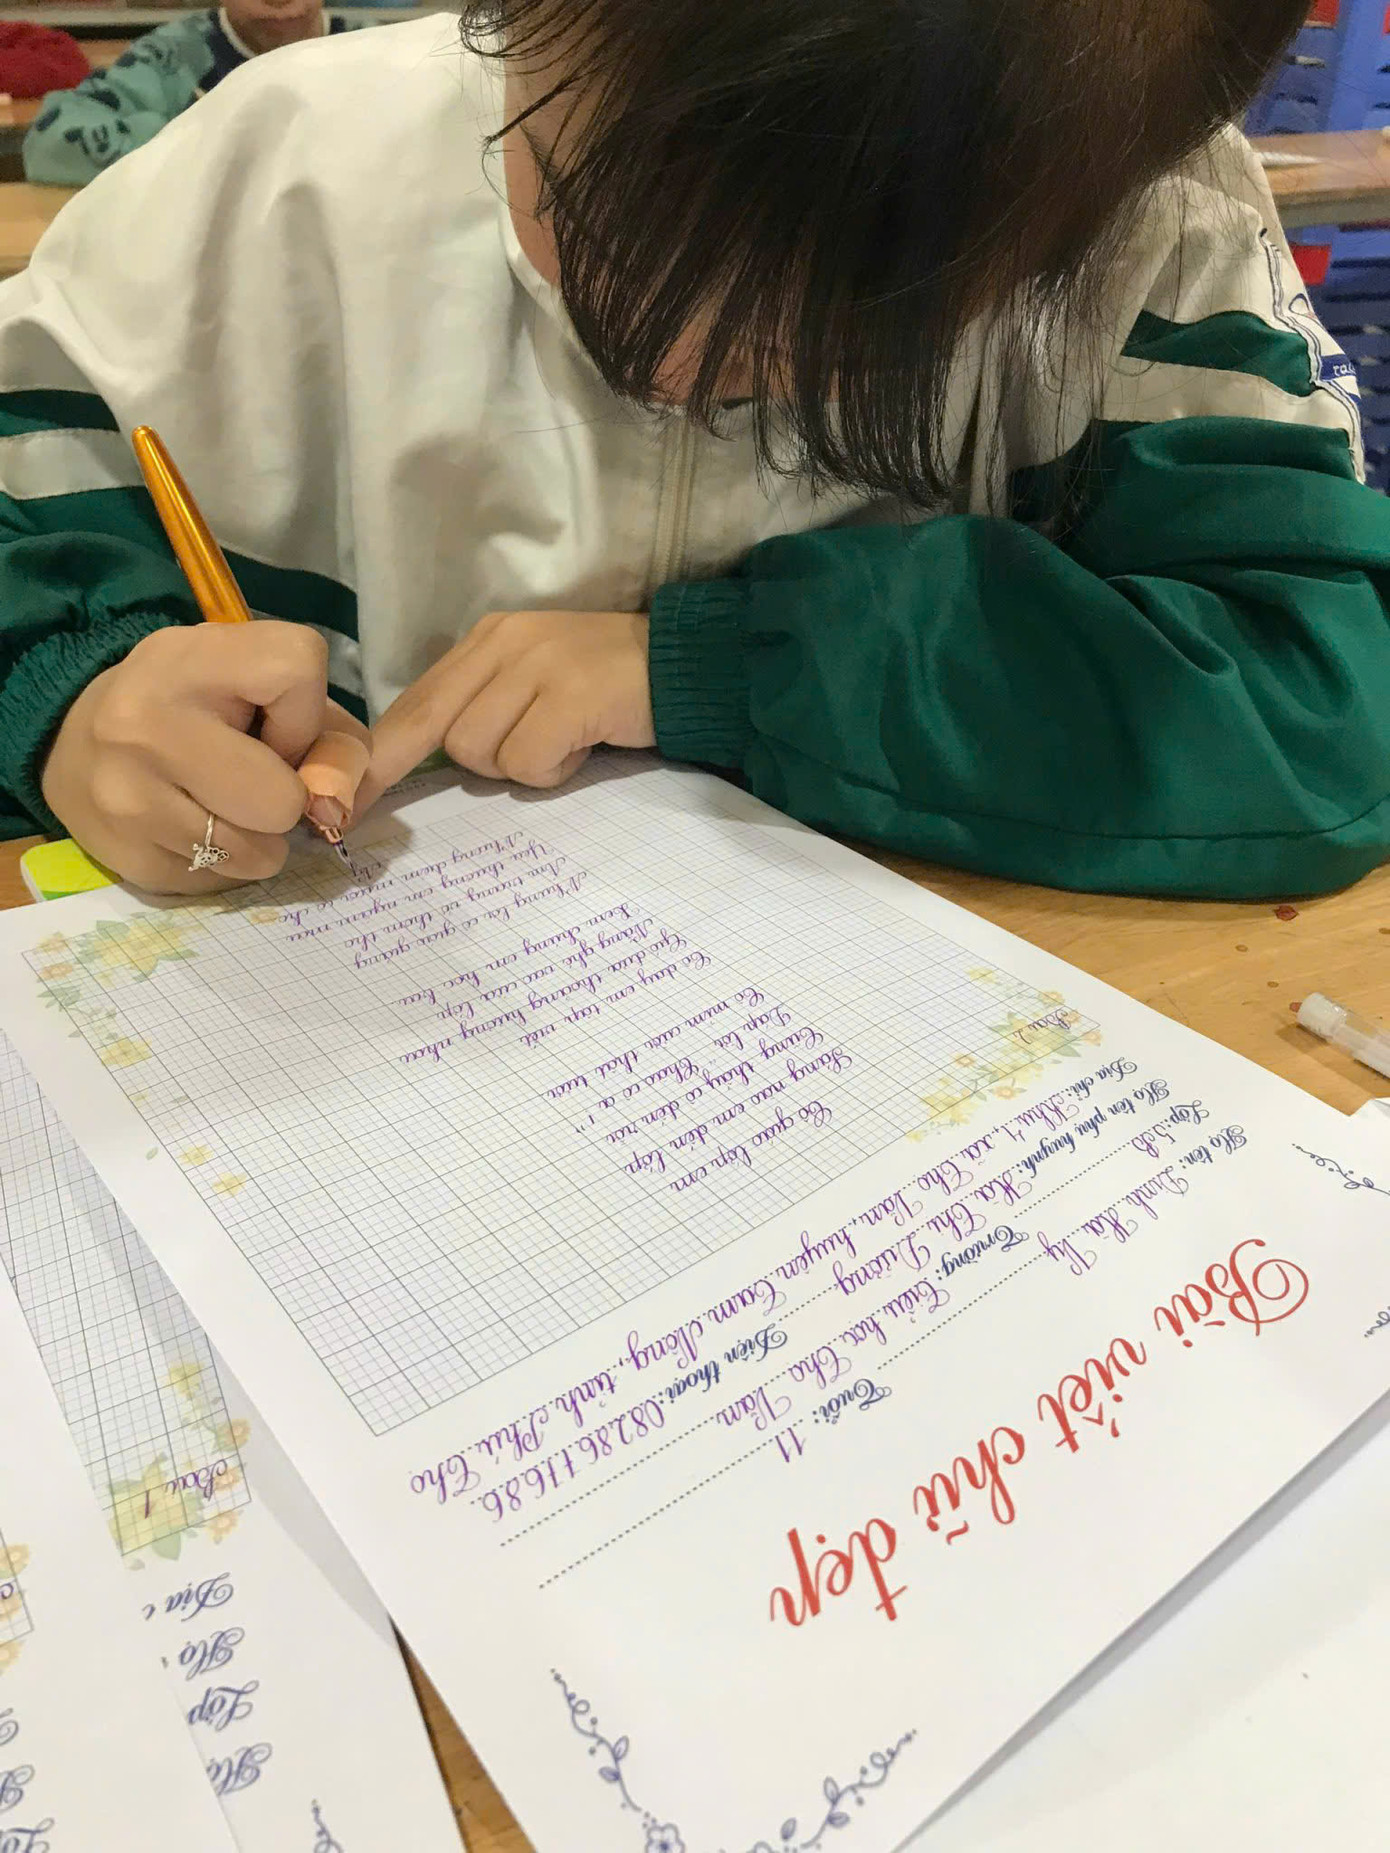 Bài viết chữ đẹp
Họ tên: Đinh Hà Vy Tuổi: 11
Lớp: 5B Trường: Tiểu học Thọ Văn
Họ tên phụ huynh: Hà Thị Dường Điện thoại: 0828611686
Địa chỉ: Khu 4, xã Thọ Văn, huyện Tam Nông, tỉnh Phú Thọ
Bài 2
Cô giáo lớp em
Sáng nào em đến lớp
Cũng thấy cô đến rồi
Đáp lời "Chào cô ạ!"
Cô mỉm cười thật tươi
Cô dạy em tập viết
Gió đưa thoảng hương nhài
Nắng ghé vào cửa lớp
Xem chúng em học bài
Những lời cô giáo giảng
Ấm trang vở thơm tho
Yêu thương em ngắm mãi
Những điểm mười cô cho
Bài 1
Địa
Họ
Lớp
Họ